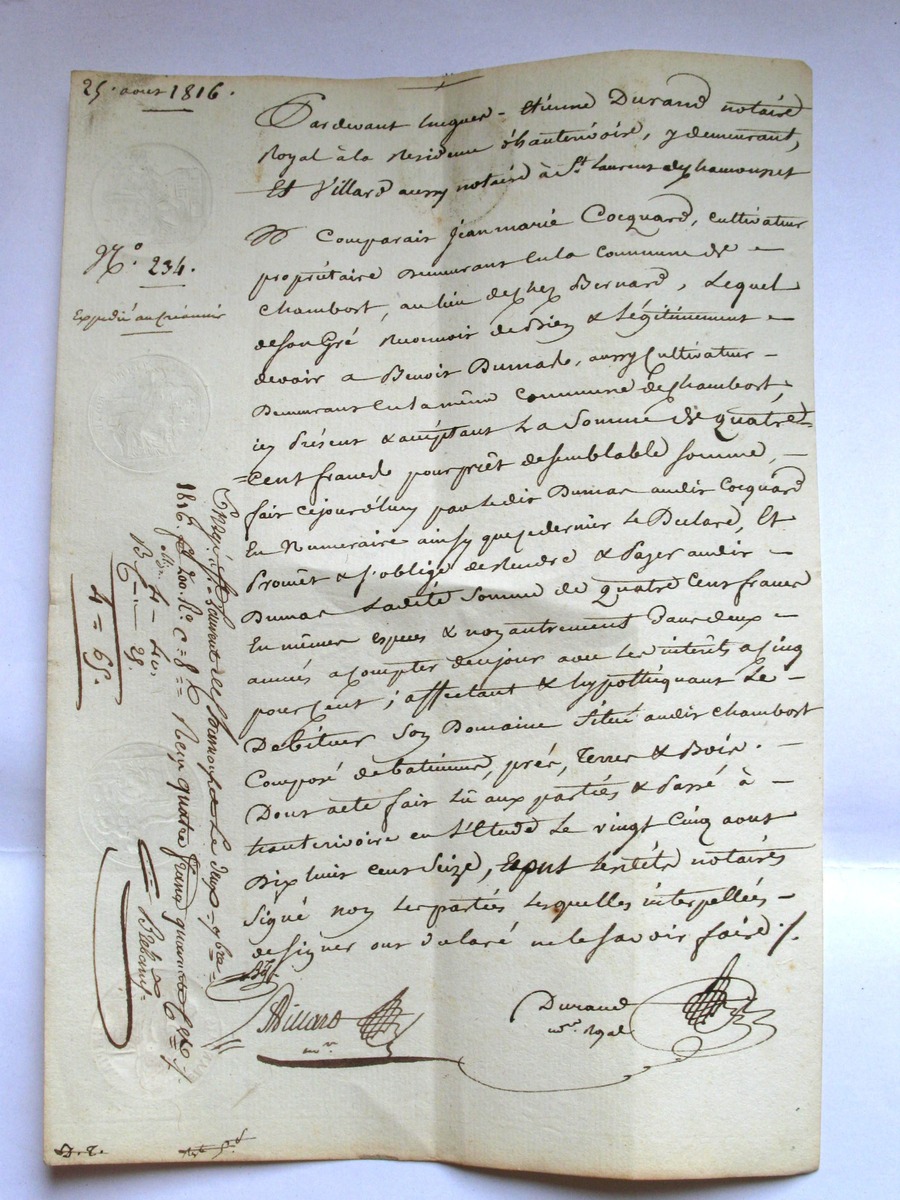 25. aout 1816.
N.° 234.
Expedié au Créancier
Pardevant Etienne Durand notaire
Royal à la Residence d'hauterivoire, y demeurant,
Et Villard aussy notaire à St. Laurent de Chamousset
Comparait Jean marie Cocquard, cultivateur
propriétaire demeurant en la commune de
Chambost, au lieu de chez Bernard, Lequel
de son Gré reconnoit de bien & Légitimement
devoir a Benoit Dumas, aussy Cultivateur
demeurant en la même commune de Chambost,
icy présent & acceptant La Somme de quatre
Cent francs pour prêt de semblable somme,
fait cejourd'huy par le dit Dumas audit Cocquard
En Numeraire ainsy que ce dernier Le Declare, Et
Promet & s'oblige de Rendre & Payer audit
Dumas Ladite Somme de quatre Cent francs
En mêmes especes & non autrement Dans deux
années a Compter de ce jour avec Les intérêts a Cinq
pour Cent ; affectant & hypothéquant Le
Debiteur Son Domaine Situé audit Chambost
Composé de batiments, prés, Terres & Bois.
Dont acte fait Lû aux parties & Passé à
hauterivoire en L'Etude Le vingt Cinq aout
Dix huit Cent Seize, Et ont Lesdits notaires
Signé non Les parties Lesquelles interpellées
de signer ont declaré ne le savoir faire ./.
Villard
nre.
Durand
nre. Royal
St. Laurent de Chamousset Le
1816. f.° 200. R.° C = 8
quatre francs quarante
4 = 65.
D. T.